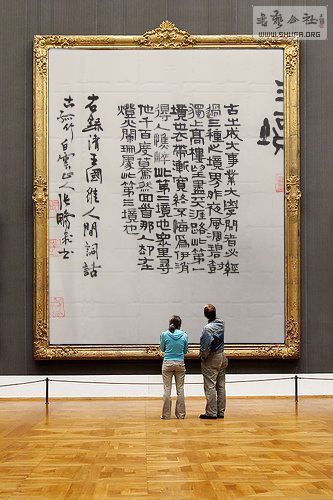 書法公社
WWW.SHUFA.ORG
三
古之成大事業大學問者必經
過三種之境界昨夜西風凋碧樹
獨上高樓望盡天涯路此第一
境也衣帶漸寬終不悔爲伊消
得人憔悴此第二境也眾里尋
他千百度驀然回首那人却在
燈火闌珊處此第三境也
右錄清王國維人間詞話
白雲山人張